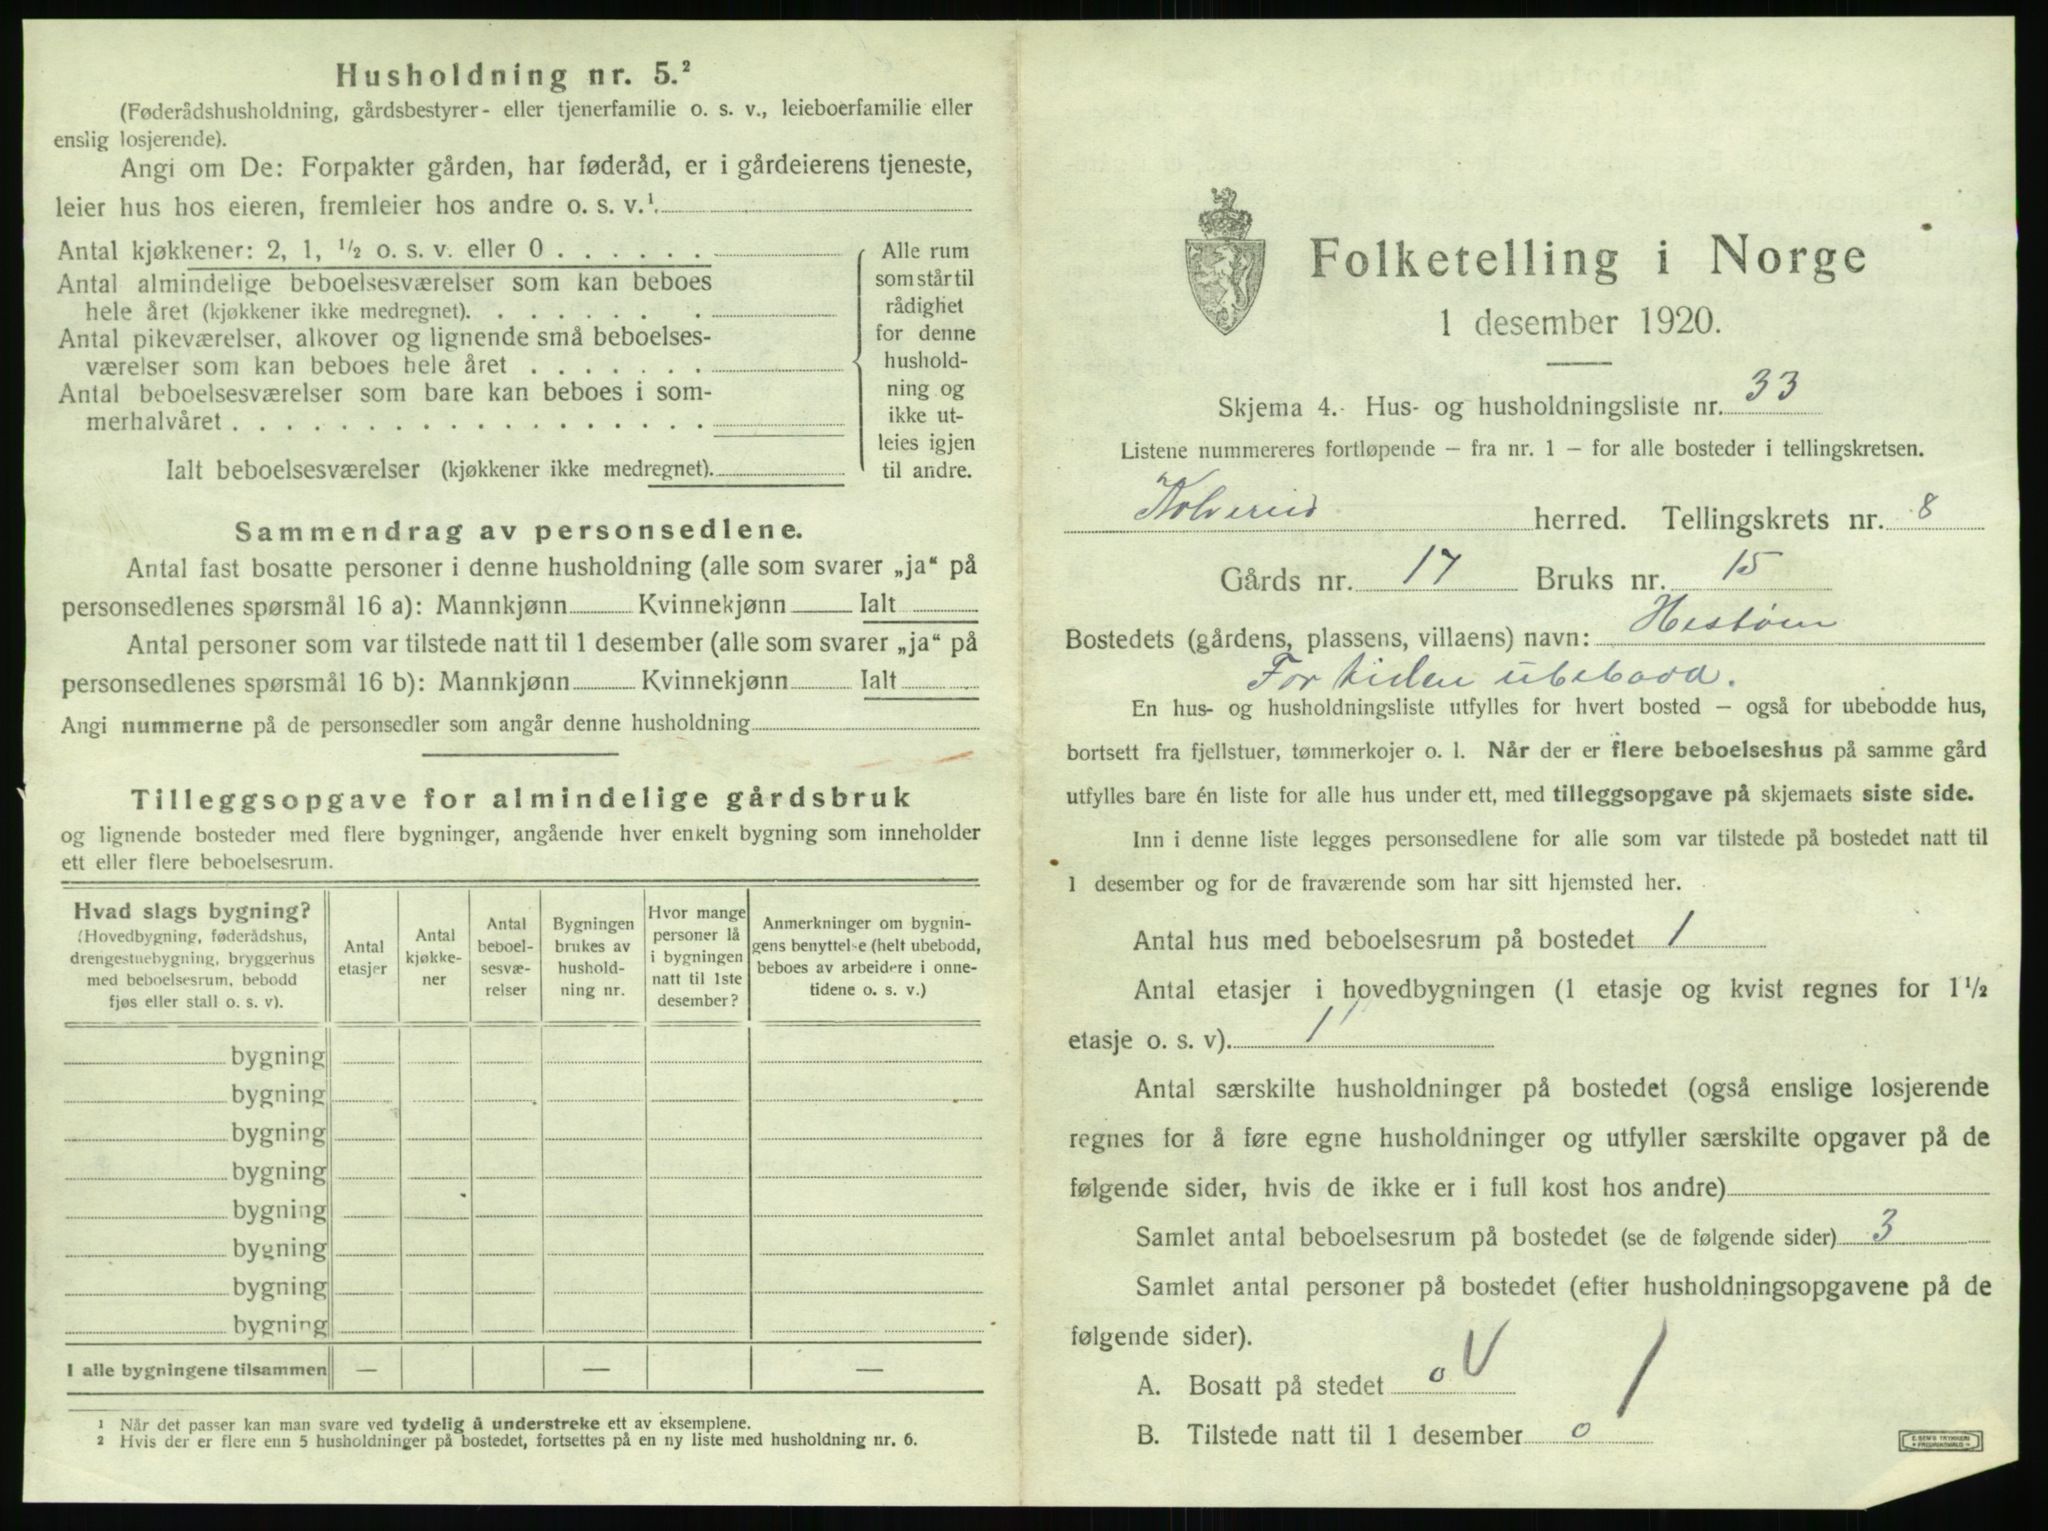 Husholdning nr. 5.²
(Føderådshusholdning, gårdsbestyrer- eller tjenerfamilie o. s. v., leieboerfamilie eller
enslig losjerende).
Angi om De: Forpakter gården, har føderåd, er i gårdeierens tjeneste,
leier hus hos eieren, fremleier hos andre o. s. v.¹.
Antal kjøkkener: 2, 1, ½ o. s. v. eller 0 . . . . . .
Antal almindelige beboelsesværelser som kan beboes
hele året (kjøkkener ikke medregnet). . . . . . . .
Antal pikeværelser, alkover og lignende små beboelses-
værelser som kan beboes hele året . . . . . . .
Antal beboelsesværelser som bare kan beboes i som-
merhalvåret . . . . . . . . . . . . . . . . . .
Ialt beboelsesværelser (kjøkkener ikke medregnet).
Alle rum
som står til
rådighet
for denne
hushold-
ning og
ikke ut-
leies igjen
til andre.
Sammendrag av personsedlene.
Antal fast bosatte personer i denne husholdning (alle som svarer „ja“ på
personsedlenes spørsmål 16 a): Mannkjønn Kvinnekjønn Ialt
Antal personer som var tilstede natt til 1 desember (alle som svarer „ja“ på
personsedlenes spørsmål 16 b): Mannkjønn Kvinnekjønn Ialt
Angi nummerne på de personsedler som angår denne husholdning
Tilleggsopgave for almindelige gårdsbruk
og lignende bosteder med flere bygninger, angående hver enkelt bygning som inneholder
ett eller flere beboelsesrum.
Hvad slags bygning?
(Hovedbygning, føderådshus,
drengestuebygning, bryggerhus
med beboelsesrum, bebodd
fjøs eller stall o. s. v).
Antal
etasjer
Antal
kjøkke-
ner
Antal
beboel-
sesvæ-
relser
Bygningen
brukes av
hushold-
ning nr.
Hvor mange
personer lå
i bygningen
natt til 1ste
desember?
Anmerkninger om bygnin-
gens benyttelse (helt ubebodd,
beboes av arbeidere i onne-
tidene o. s. v.)
bygning
bygning
bygning
bygning
bygning
bygning
bygning
bygning
I alle bygningene tilsammen — — —
¹ Når det passer kan man svare ved tydelig å understreke ett av eksemplene.
² Hvis der er flere enn 5 husholdninger på bostedet, fortsettes på en ny liste med husholdning nr. 6.
Folketelling i Norge
1 desember 1920.
Skjema 4. Hus- og husholdningsliste nr. 33
Listene nummereres fortløpende – fra nr. 1 – for alle bosteder i tellingskretsen.
Kolvereid herred. Tellingskrets nr. 8
Gårds nr. 17 Bruks nr. 15
Bostedets (gårdens, plassens, villaens) navn:
For tiden ubebodd.
En hus- og husholdningsliste utfylles for hvert bosted – også for ubebodde hus,
bortsett fra fjellstuer, tømmerkojer o. l. Når der er flere beboelseshus på samme gård
utfylles bare én liste for alle hus under ett, med tilleggsopgave på skjemaets siste side.
Inn i denne liste legges personsedlene for alle som var tilstede på bostedet natt til
1 desember og for de fraværende som har sitt hjemsted her.
Antal hus med beboelsesrum på bostedet 1
Antal etasjer i hovedbygningen (1 etasje og kvist regnes for 1½
etasje o. s. v). 1
Antal særskilte husholdninger på bostedet (også enslige losjerende
regnes for å føre egne husholdninger og utfyller særskilte opgaver på de
følgende sider, hvis de ikke er i full kost hos andre)
Samlet antal beboelsesrum på bostedet (se de følgende sider) 3
Samlet antal personer på bostedet (efter husholdningsopgavene på de
følgende sider).
A. Bosatt på stedet 0
B. Tilstede natt til 1 desember 0